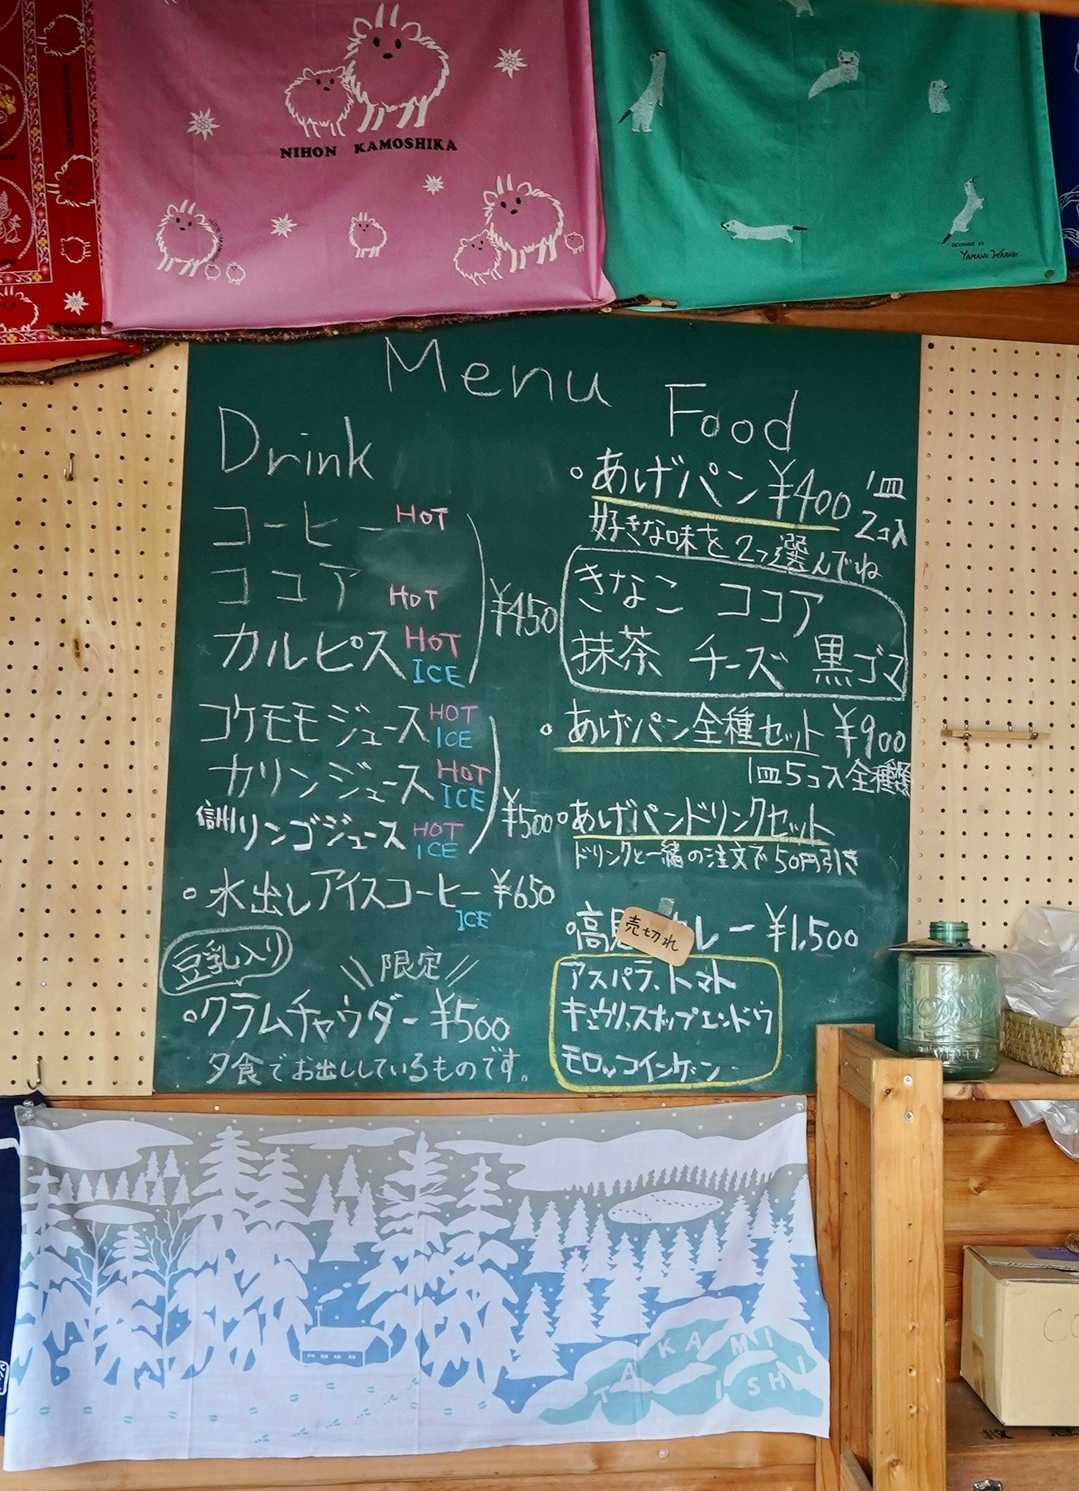 NIHON KAMOSHIKA
DESIGNED BY
Menu
Drink
コーヒー HOT
ココア HOT
カルピス HOT ICE
¥450
コケモモジュース HOT ICE
カリンジュース HOT ICE
信州リンゴジュース HOT ICE
¥500
・水出しアイスコーヒー ¥650
ICE
豆乳入り
\\限定//
・クラムチャウダー ¥500
夕食でお出ししているものです。
Food
・あげパン ¥400 1皿2コ入
好きな味を2つ選んでね
きなこ ココア
抹茶 チーズ 黒ゴマ
・あげパン全種セット ¥900
1皿5コ入全種類
・あげパンドリンクセット
ドリンクと一緒の注文で50円引き
・高見 レー ¥1,500
売切れ
アスパラ、トマト
キュウリ、スナップエンドウ
モロッコインゲン
TAKAMI
ISHI